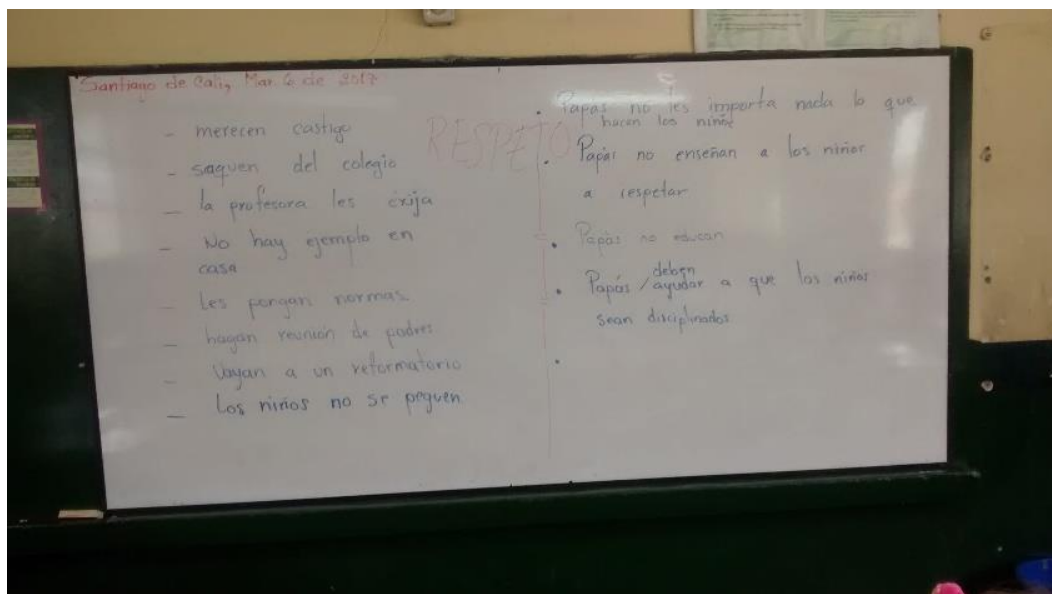 Santiago de Cali, Mar 6 de 2017
RESPETO
- merecen castigo
- saquen del colegio
- la profesora les exija
- No hay ejemplo en
casa
- Les pongan normas
- hagan reunión de padres
- Vayan a un reformatorio
- Los niños no se peguen
• Papas no les importa nada lo que
hacen los niños
• Papás no enseñan a los niños
a respetar
• Papás no educan
• Papás / deben ayudar a que los niños
sean disciplinados
•